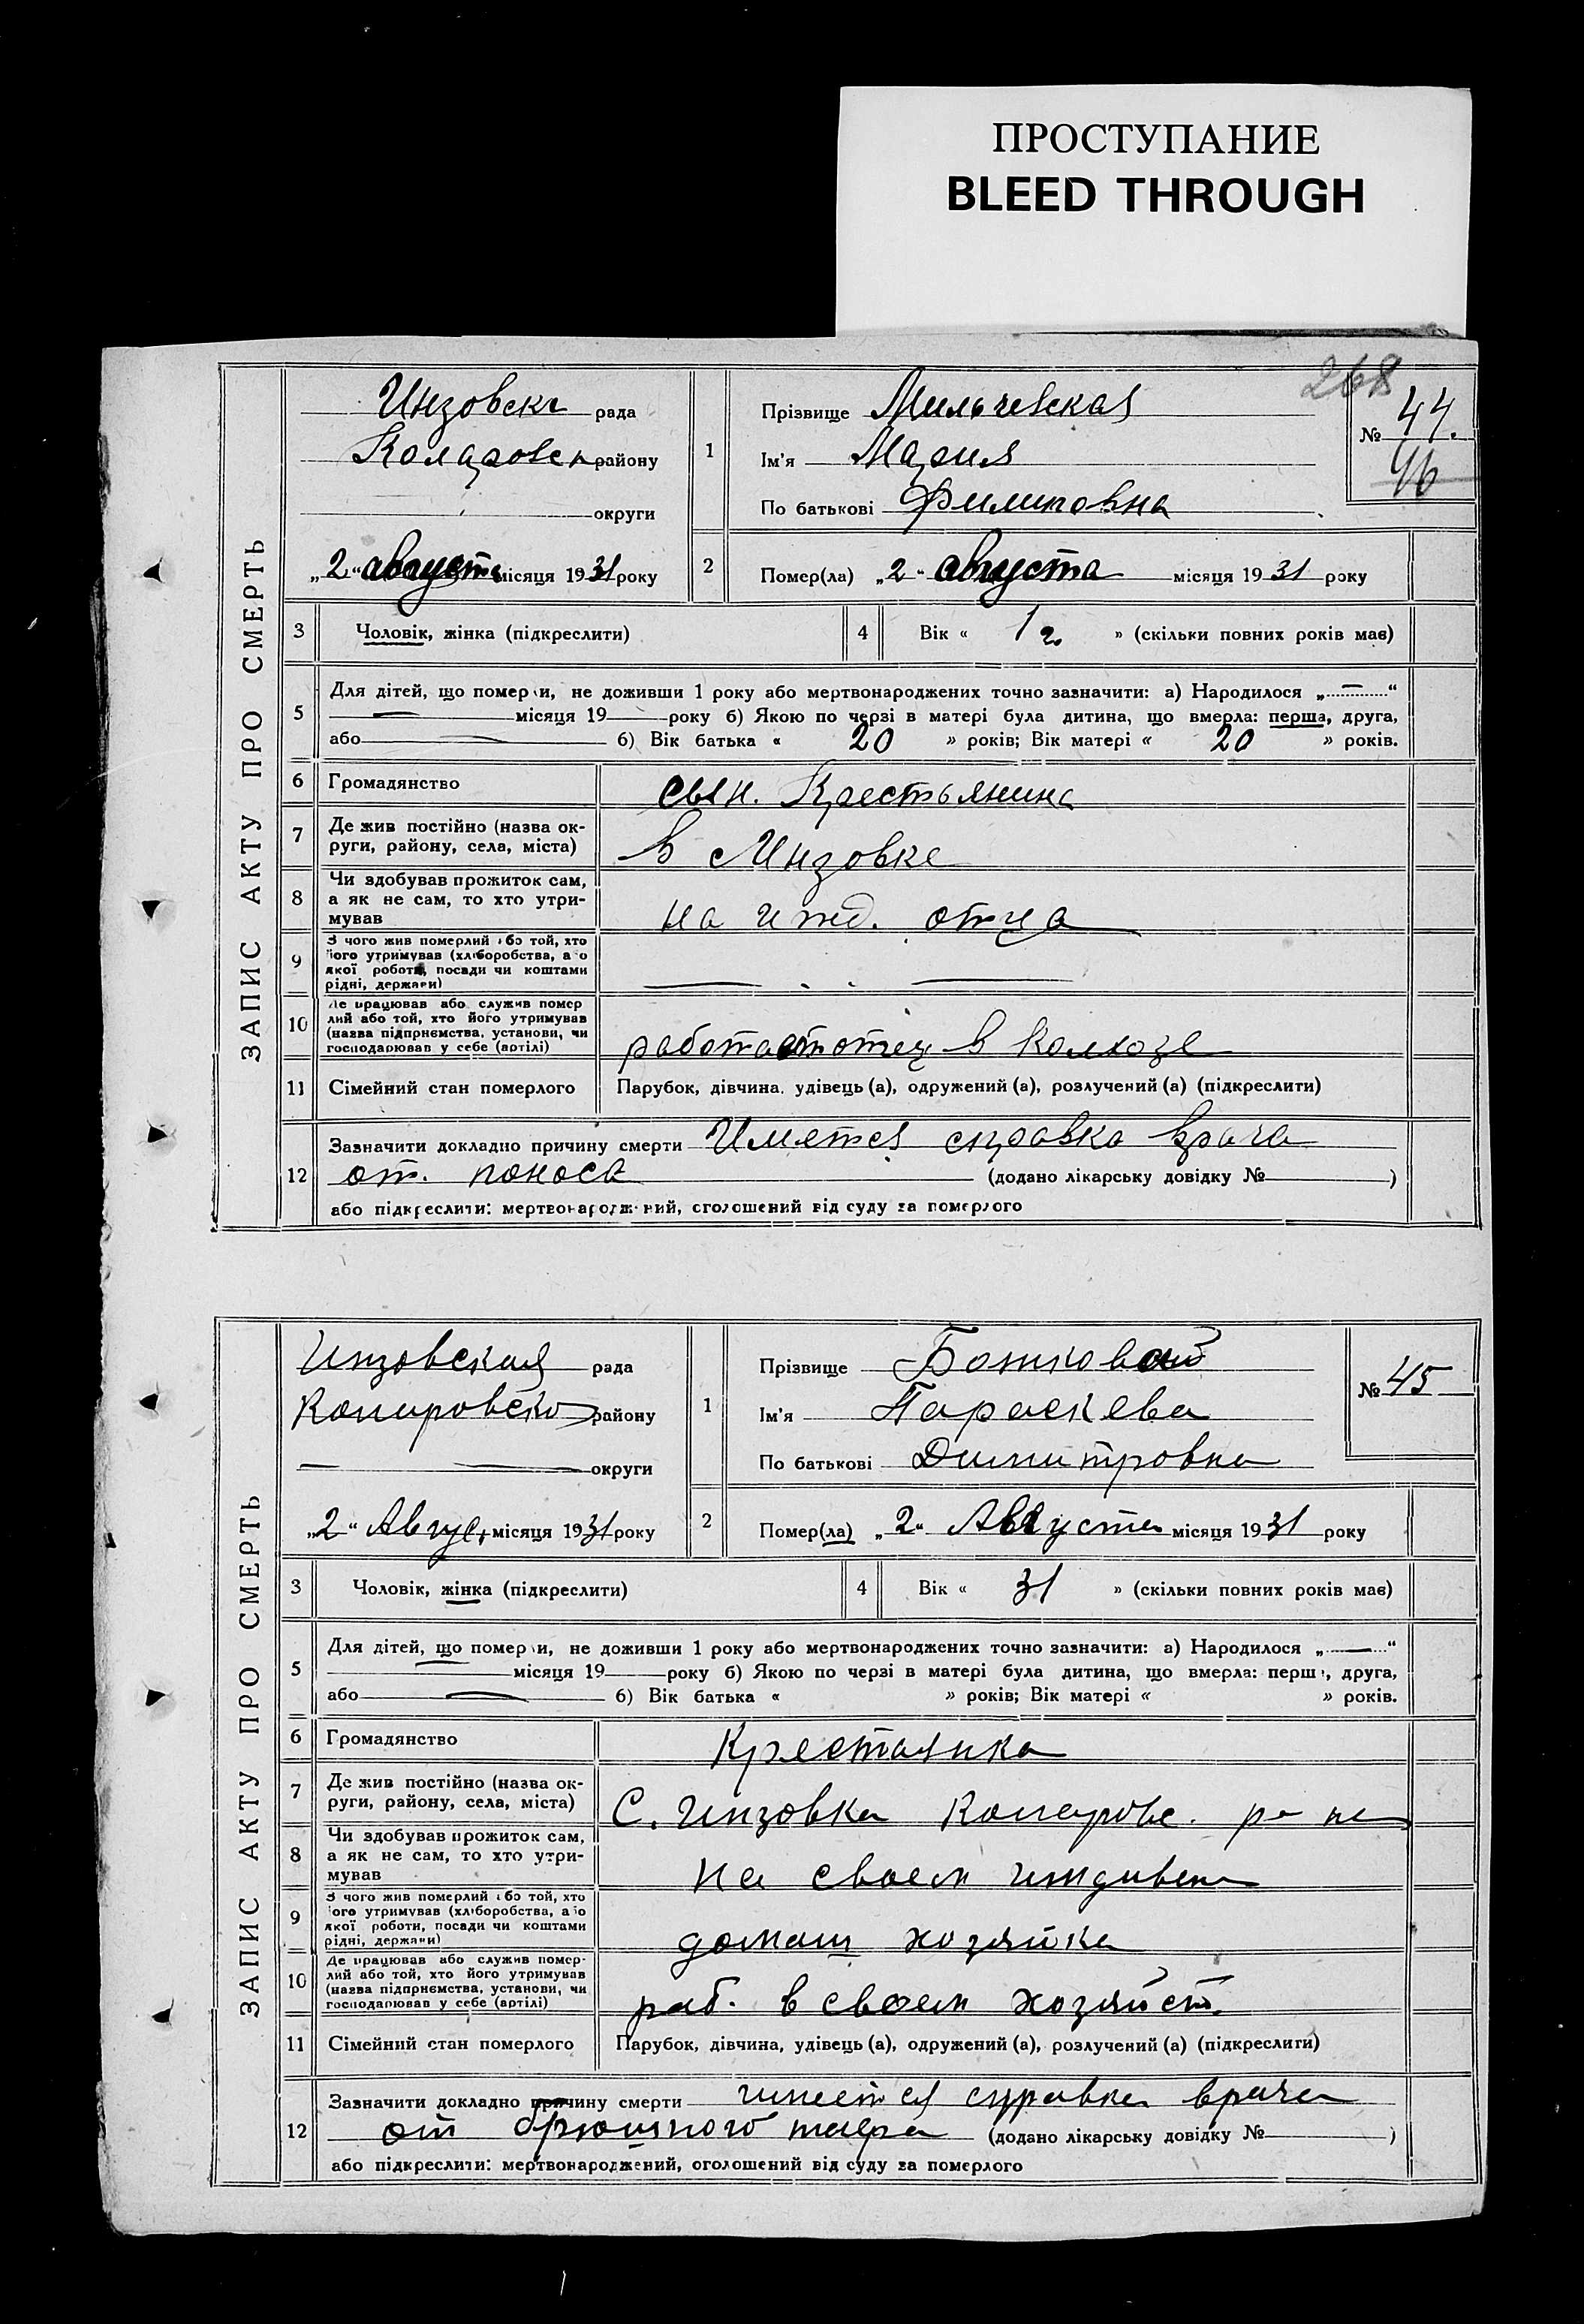 ПРОСТУПАНИЕ
BLEED THROUGH
268
ЗАПИС АКТУ ПРО СМЕРТЬ
Инзовска рада
Коларовск району
округи
„2“ августа місяця 1931 року
1
Прізвище Мильчевская
Ім'я Мария
По батькові Филиповна
№ 44.
46
2
Помер(ла) „2“ августа місяця 1931 року
3 Чоловік, жінка (підкреслити)
4 Вік « 1 г. » (скільки повних років має)
5
Для дітей, що померли, не доживши 1 року або мертвонароджених точно зазначити: а) Народилося „—“
— місяця 19 року б) Якою по черзі в матері була дитина, що вмерла: перша, друга,
або — 6) Вік батька « 20 » років; Вік матері « 20 » років.
6 Громадянство сын. Крестьянина
7 Де жив постійно (назва ок-
руги, району, села, міста)
в Инзовке
8 Чи здобував прожиток сам,
а як не сам, то хто утри-
мував
на ижд. отца
9 З чого жив померлий або той, хто
його утримував (хліборобства, або
якої роботи, посади чи коштами
рідні, держави)
10 Де працював або служив помер
лий або той, хто його утримував
(назва підприємства, установи, чи
господарював у себе (артілі)
работает отец в колхозе
11 Сімейний стан померлого Парубок, дівчина, удівець (а), одружений (а), розлучений (а) (підкреслити)
12
Зазначити докладно причину смерти Имется справка врача
от. поноса (додано лікарську довідку № )
або підкреслити: мертвонароджений, оголошений від суду за померлого
ЗАПИС АКТУ ПРО СМЕРТЬ
Инзовская рада
району
округи
„2“ Август місяця 1931 року
1
Прізвище
Ім'я Параскева
По батькові Димитровна
№ 45
2
Помер(ла) „2“ Августа місяця 1931 року
3 Чоловік, жінка (підкреслити)
4 Вік « 31 » (скільки повних років має)
5
Для дітей, що померли, не доживши 1 року або мертвонароджених точно зазначити: а) Народилося „—“
місяця 19 року б) Якою по черзі в матері була дитина, що вмерла: перша, друга,
або — 6) Вік батька « » років; Вік матері « » років.
6 Громадянство Крестянка
7 Де жив постійно (назва ок-
руги, району, села, міста)
С. Инзовка р-на
8 Чи здобував прожиток сам,
а як не сам, то хто утри-
мував
на своем иждивен
9 З чого жив померлий або той, хто
його утримував (хліборобства, або
якої роботи, посади чи коштами
рідні, держави)
домаш хозяйка
10 Де працював або служив помер-
лий або той, хто його утримував
(назва підприємства, установи, чи
господарював у себе (артілі)
раб. в своем хозяйст.
11 Сімейний стан померлого Парубок, дівчина, удівець (а), одружений (а), розлучений (а) (підкреслити)
12
Зазначити докладно причину смерти имеется справка врача
от брюшного тифа (додано лікарську довідку № )
або підкреслити: мертвонароджений, оголошений від суду за померлого